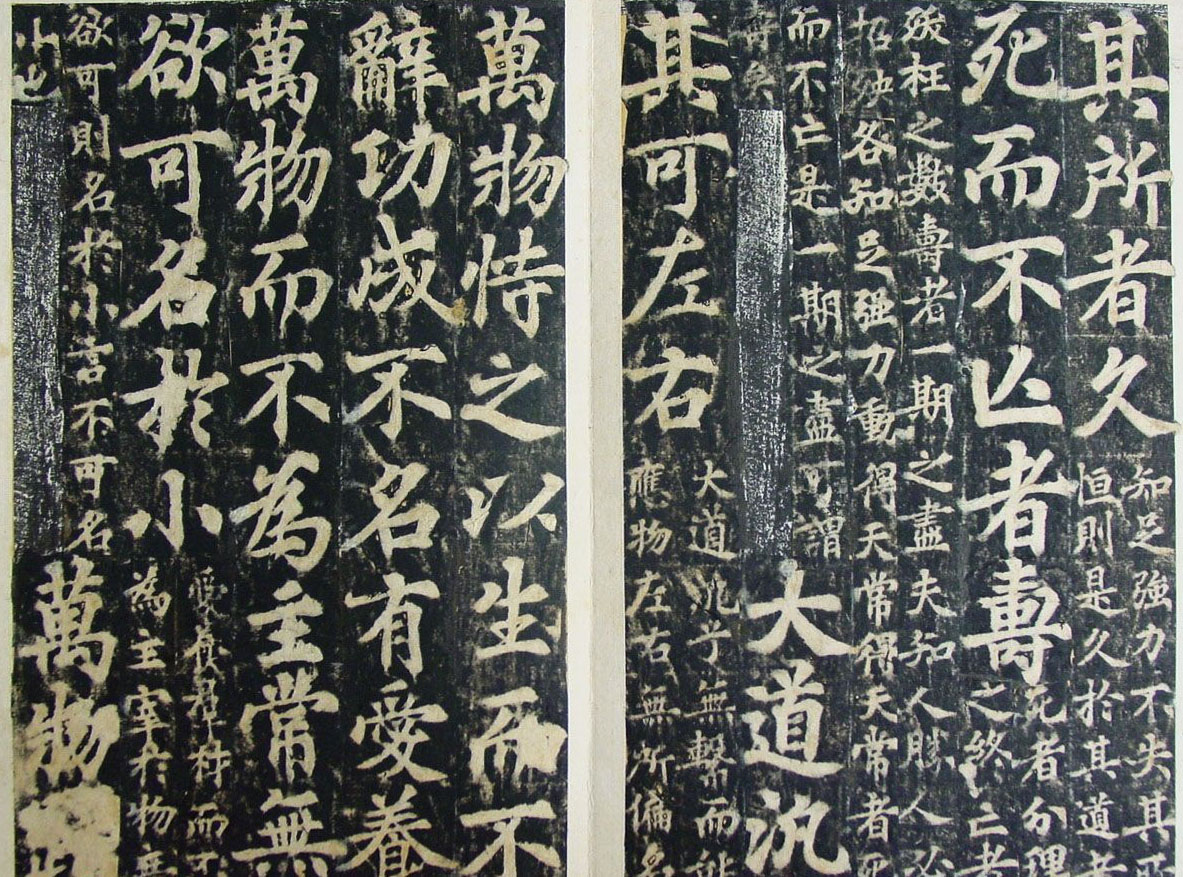 其所者久
知足強力不失其
恒則是久於其道者
死而不亡者壽
死者分理
之終亡者
殘枉之數壽老一期之盡夫知人勝人必
招殃各知足强刀動得天常得天常者死
而不亡是一期之盡可謂
壽矣
大道汎
其可左右
大道汎乎無繫而能
應物左右無所偏名
萬物恃之以生而不
辭功成不名有愛養
萬物而不為主常無
欲可名於小
愛養羣材而不
為主宰於物主
欲可則名於小言不可名
小也
萬物